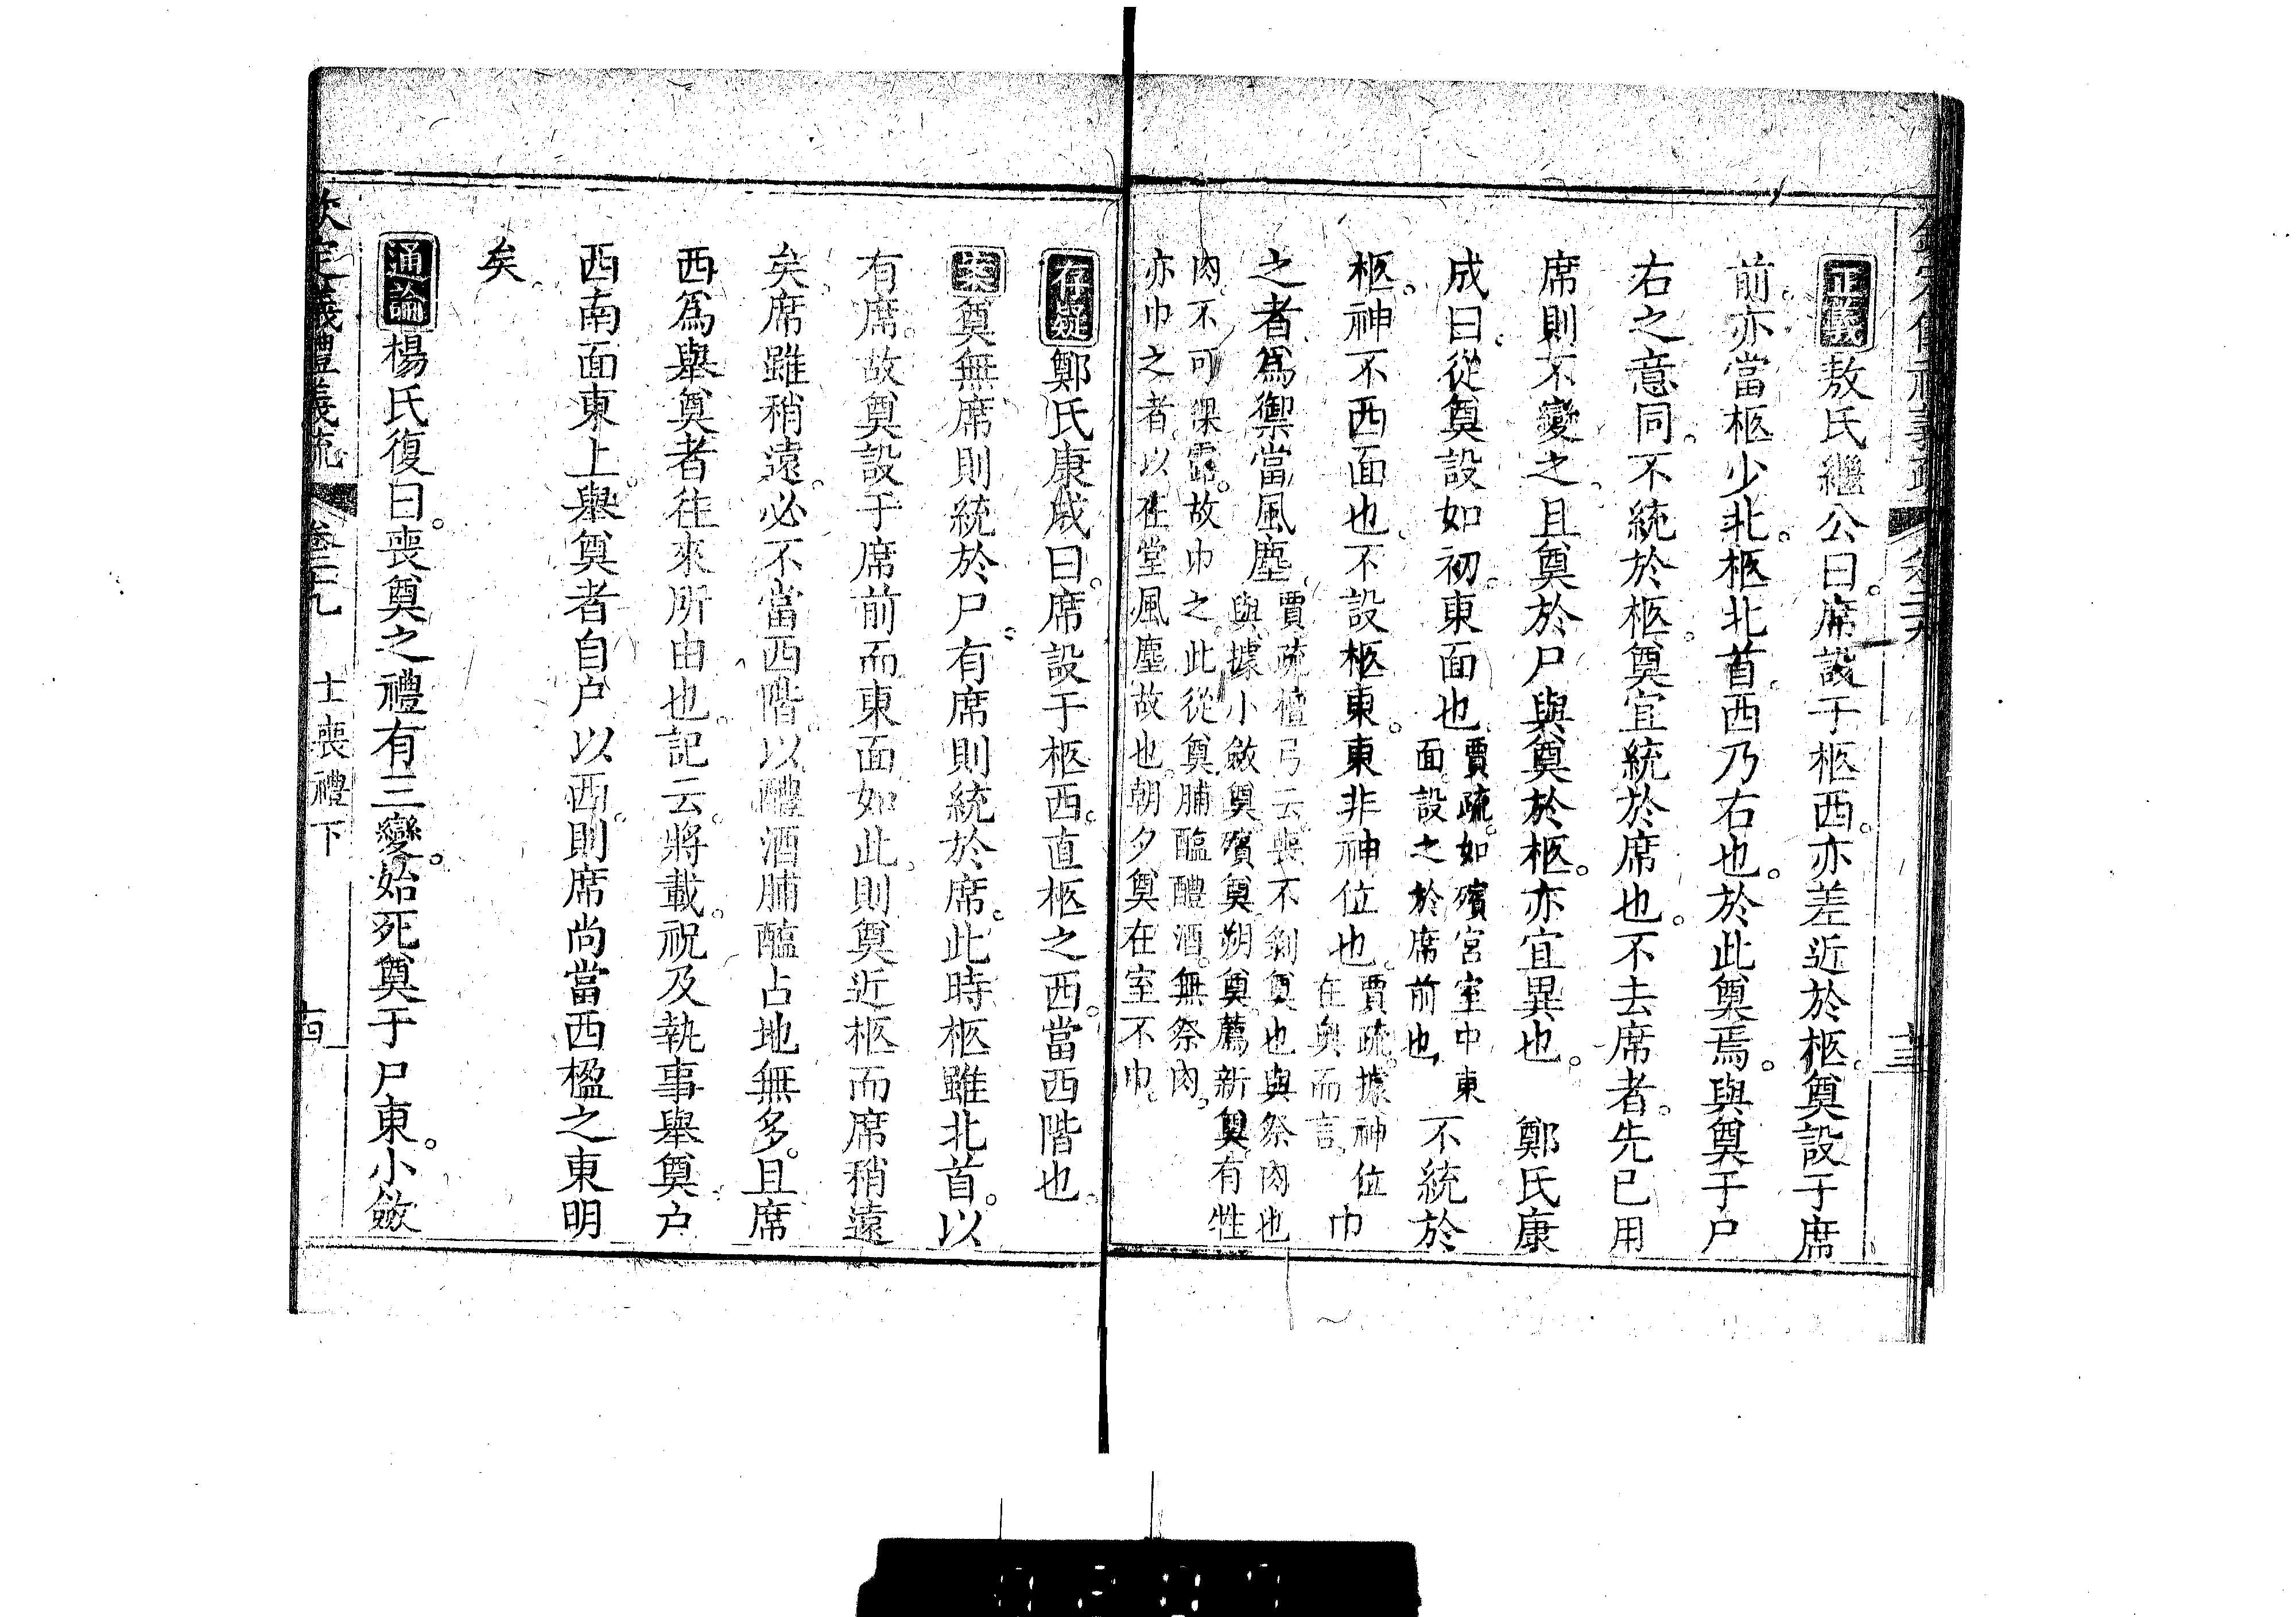 正義敖氏繼公曰席設于柩西亦差近於柩奠設于席
前亦當柩少北柩北首西乃右也於此奠焉與奠于尸
右之意同不統於柩奠宜統於席也不去席者先已用
席則不變之且奠於尸與奠於柩亦宜異也　鄭氏康
成曰從奠設如初東面也賈疏如殯宮室中東面設之於席前也不統於
柩神不西面也不設柩東東非神位也賈疏據神位在奥而言巾
之者為禦當風塵賈疏檀弓云喪不剝奠也與祭肉也與據小斂奠殯奠朔奠薦新奠有牲
肉不可倮露故巾之此從奠脯醢醴酒無祭肉
亦巾之者以在堂風塵故也朝夕奠在室不巾
存疑鄭氏康成曰席設于柩西直柩之西當西階也
案奠無席則統於尸有席則統於席此時柩雖北首以
有席故奠設于席前而東面如此則奠近柩而席稍遠
矣席雖稍遠必不當西階以醴酒脯醢占地無多且席
西為舉奠者往來所由也記云將載祝及執事舉奠户
西南面東上舉奠者自户以西則席尚當西楹之東明
矣
通論楊氏復曰喪奠之禮有三變始死奠于尸東小斂
欽定儀禮義疏　士喪禮下　十四